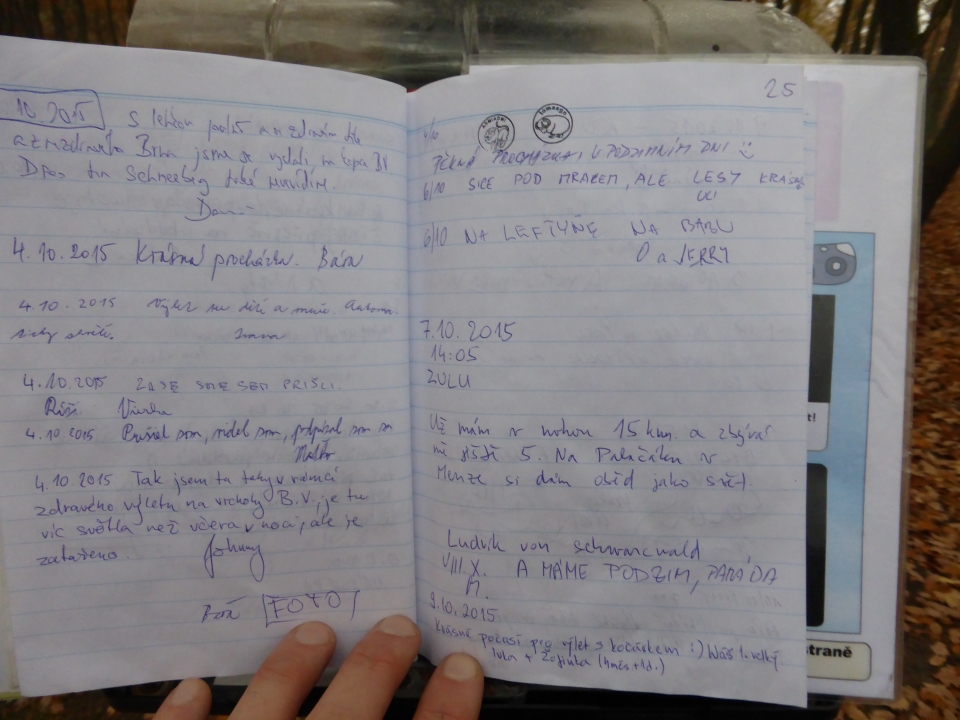 10.2015 S lehkou
Brna jsme se vydali, na kopec BV
Dnes tu Schneeberg také nevidím.
4.10.2015 Krásná procházka. Bára
4.10.2015 Výlet a
Ivana
4.10.2015 ZASE SME SEM PRIŠLI.
4.10.2015 Prišiel som, videl som, podpísal som sa
Maťko
4.10.2015 Tak jsem tu taky v rámci
zdravého výletu na vrcholy B.V., je tu
víc světla než včera v noci, ale je
zataženo. Johnny
FOTO
25
PĚKNÁ PROCHÁZKA V PODZIMNÍM DNI
6/10 SICE POD MRAKEM, ALE LESY KRÁSNĚ
6/10 NA NA BABU
O a JERRY
7.10.2015
14:05
ZULU
Už mám v nohou 15 km. a zbývá
mě ještě 5. Na Palačáku v
Menze si dám oběd jako svět.
Ludvík von Schwarcwald
VIII.X. A MÁME PODZIM, PARÁDA
M.
9.10.2015
Krásné počasí pro výlet s kočárkem :)
+ Žofinka
straně